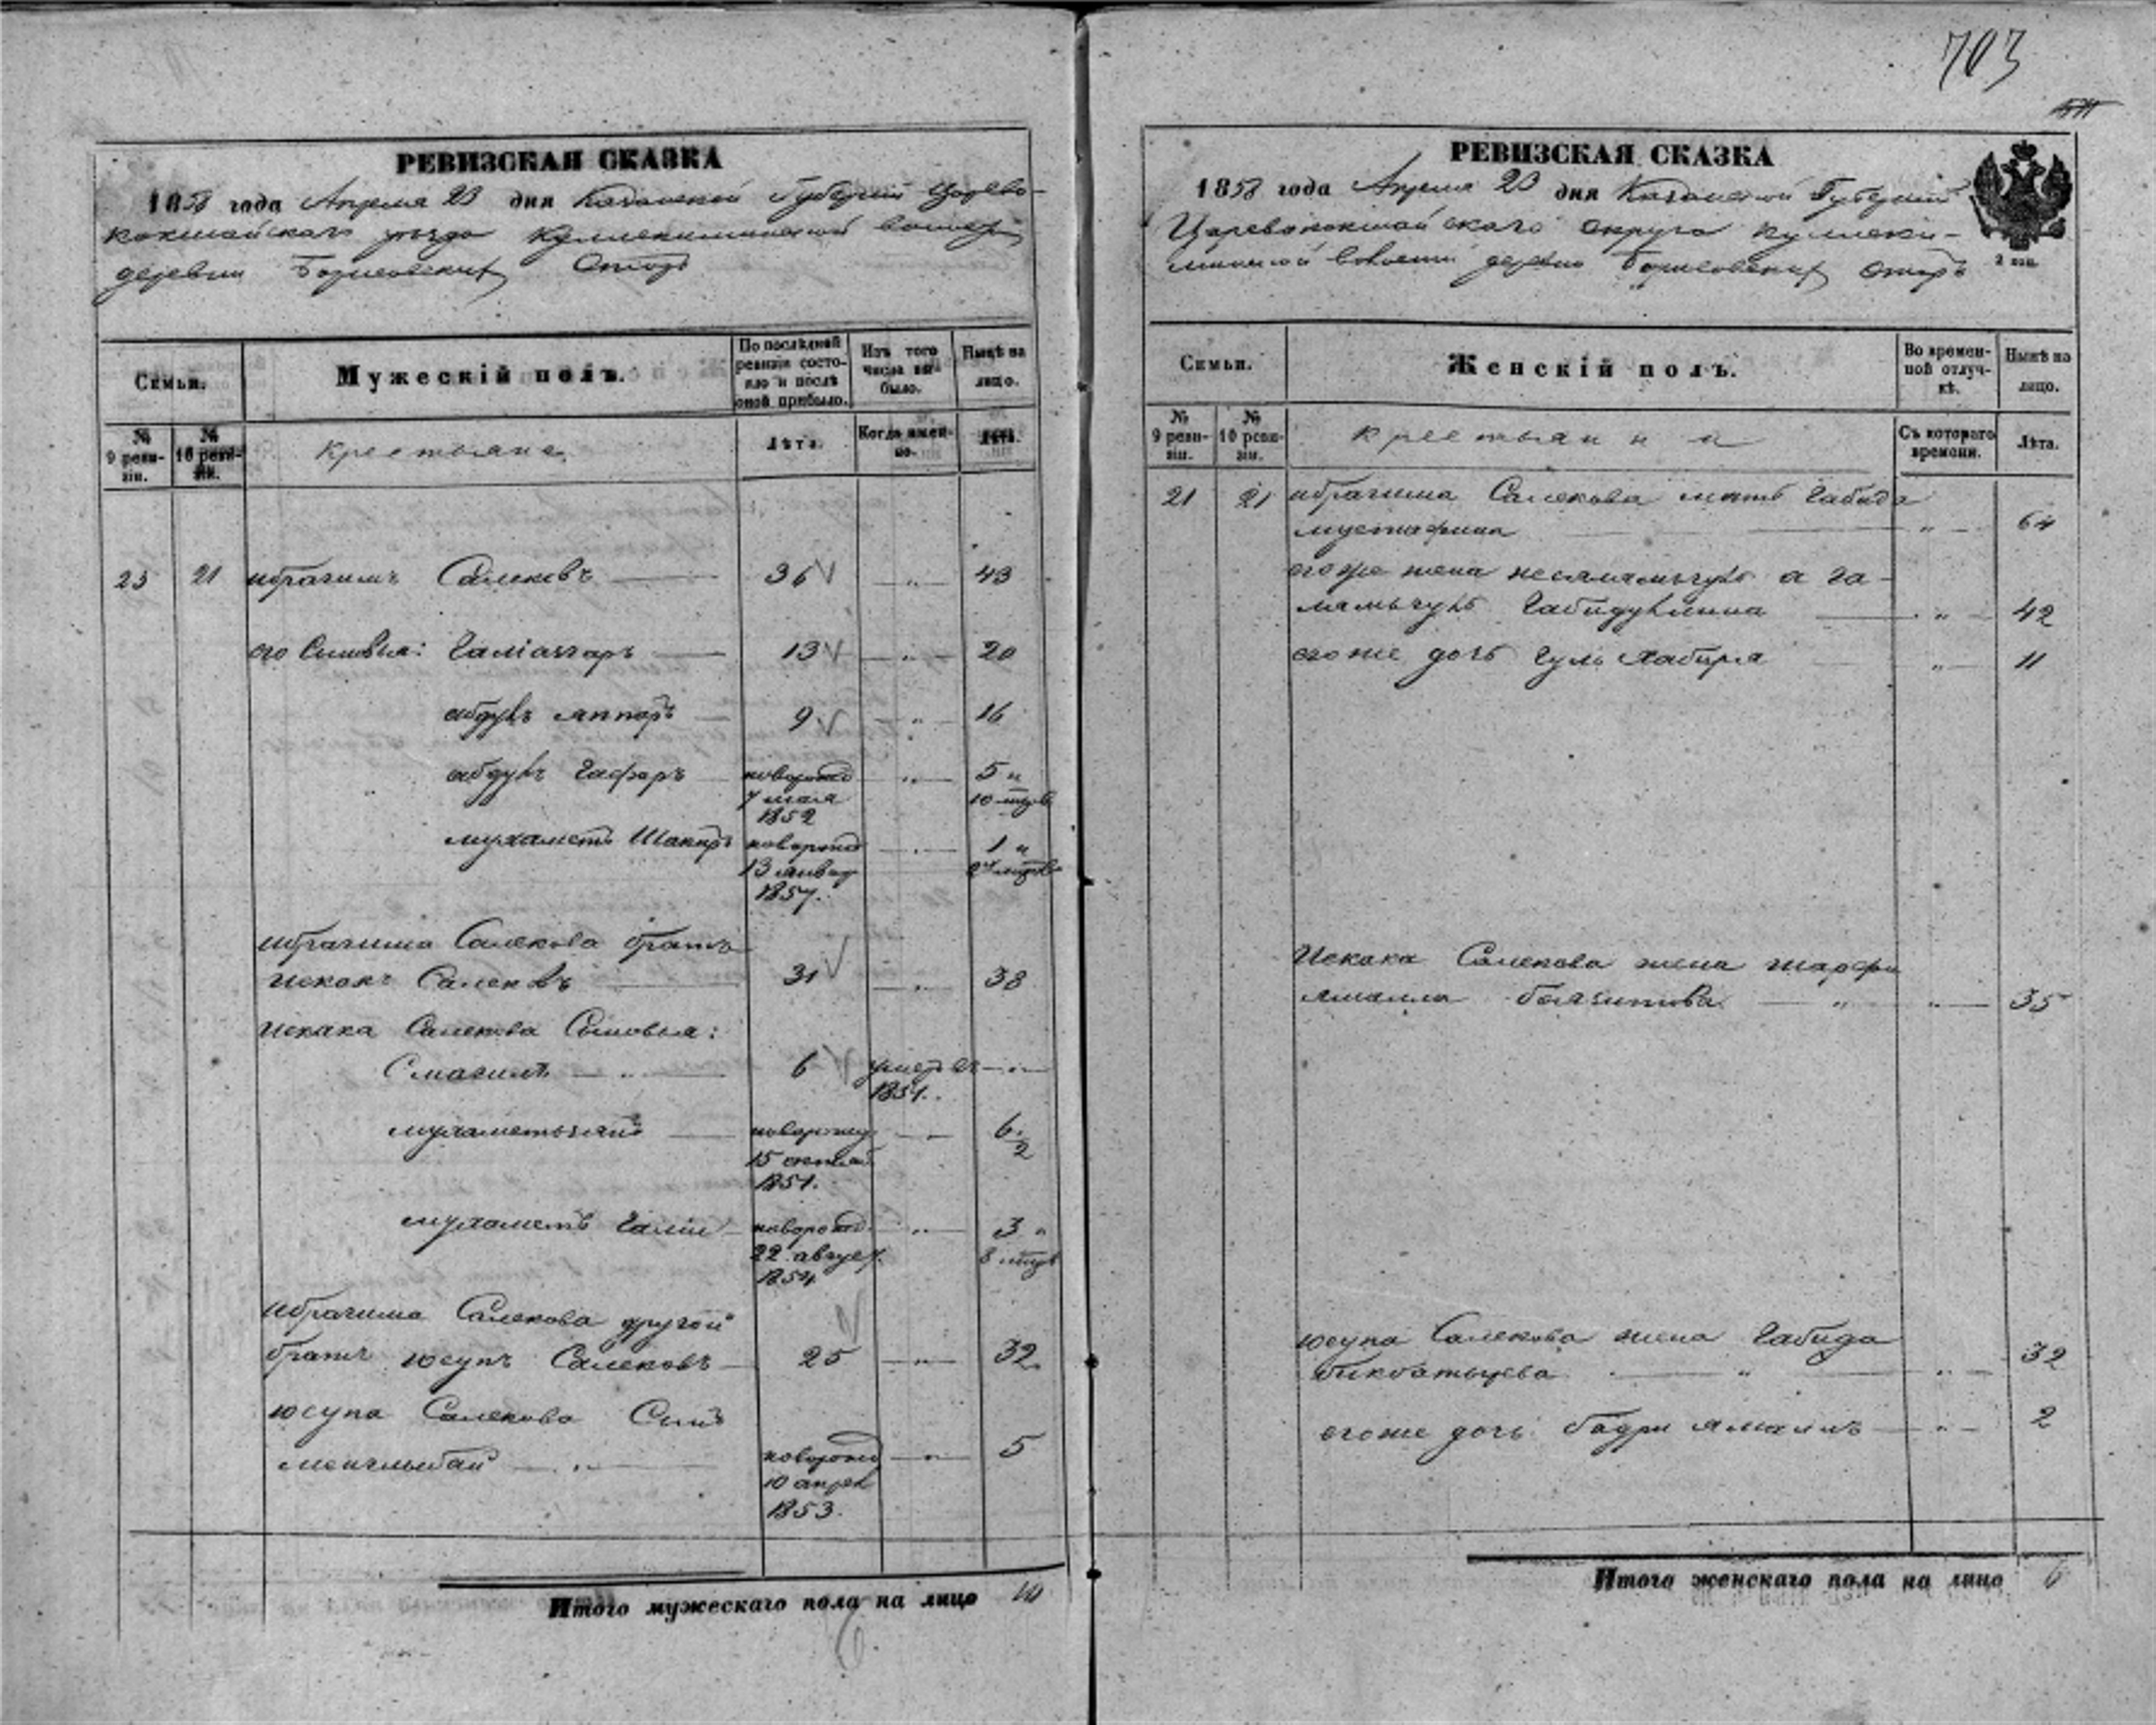 703
РЕВИЗСКАЯ СКАЗКА
1858 года Апреля 23 дня Казанской Губернии Царево-
кокшайскаго уезда волости
деревни Борисовских Отар
Семьи.
Мужескій полъ.
По послѣдней ревизіи состояло и послѣ оной прибыло.
Изъ того числа выбыло.
Нынѣ на лицо.
№ 9 ревизіи.
№ 10 ревизіи.
Крестьяне
Лѣта.
Когда именно.
Лѣта.
25 21 ибрагимъ Салековъ 36 " 43
его Сыновья: 13 " 20
абдулъ яппаръ 9 " 16
абдулъ Гафаръ новорожд " 5 "
7 мая 10 мцов
1852
мухаметъ Шакиръ новорожд " 1 "
13 январ
1857.
ибрагима Салекова братъ
искакъ Салековъ 31 " 38
искака Салекова Сыновья:
Смагилъ " 6 умеръ въ "
1851.
мухаметьзянъ новорожд " 6 1/2
15
1851.
мухаметъ Галій новорожд " 3 "
22 август. 8 мцов
1854
ибрагима Салекова другой
братъ юсупъ Салековъ 25 " 32
юсупа Салекова Сынъ
" новорожд " 5
10 апрел
1853.
Итого мужескаго пола на лицо 10
РЕВИЗСКАЯ СКАЗКА
1858 года Апреля 23 дня Казанской Губернии
Царевококшайскаго округа
волости деревни Борисовских Отаръ
Семьи.
Женскій полъ.
Во временной отлучкѣ.
Нынѣ на лицо.
№ 9 ревизіи.
№ 10 ревизіи.
Крестьянки
Съ котораго времени.
Лѣта.
21 21 ибрагима Салекова мать Габида
мустафина " 64
его же жена а га-
Габидуллина " 42
его же дочь Гуль " 11
Искака Салекова жена шарфи
ямалла баязитова " " 35
юсупа Салекова жена Габида
бикбатырева " " 32
его же дочь бадри ямалъ " 2
Итого женскаго пола на лицо 6